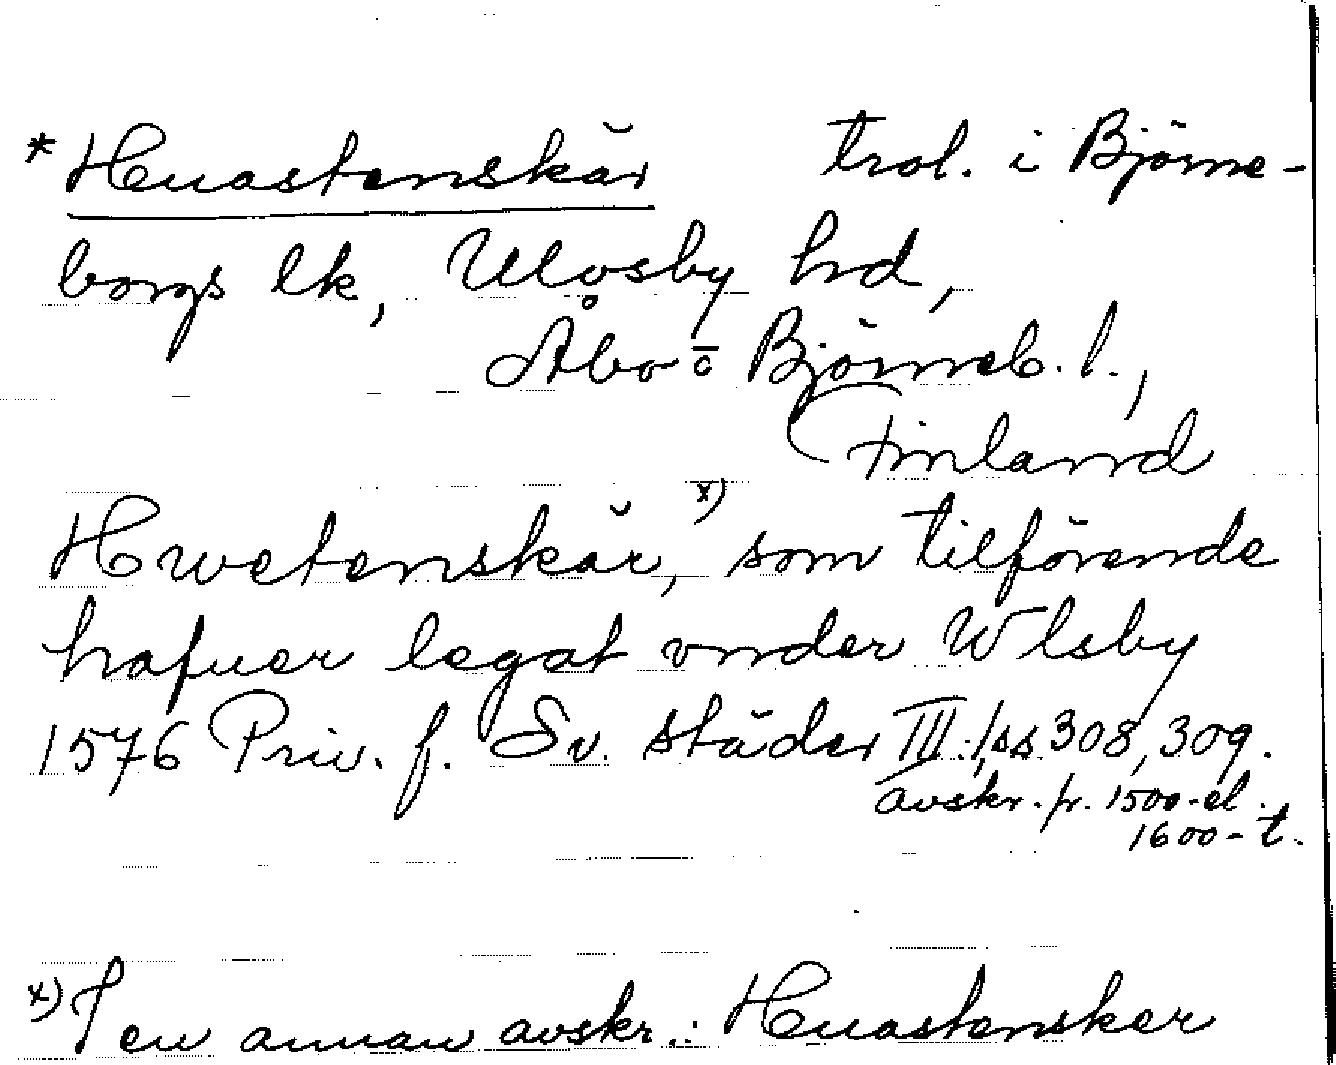 * Huastenskär trol. i Björne-
borgs lk, Ulvsby hd,
Åbo o Björneb. l.,
Finland
Hwetenskär, x) som tilförende
hafuer legat vnder Wlsby
1576 Priv. f. Sv. städer III:1, ss 308, 309.
avskr. fr. 1500- el.
1600-t.
x) I en annan avskr.: Huastensker